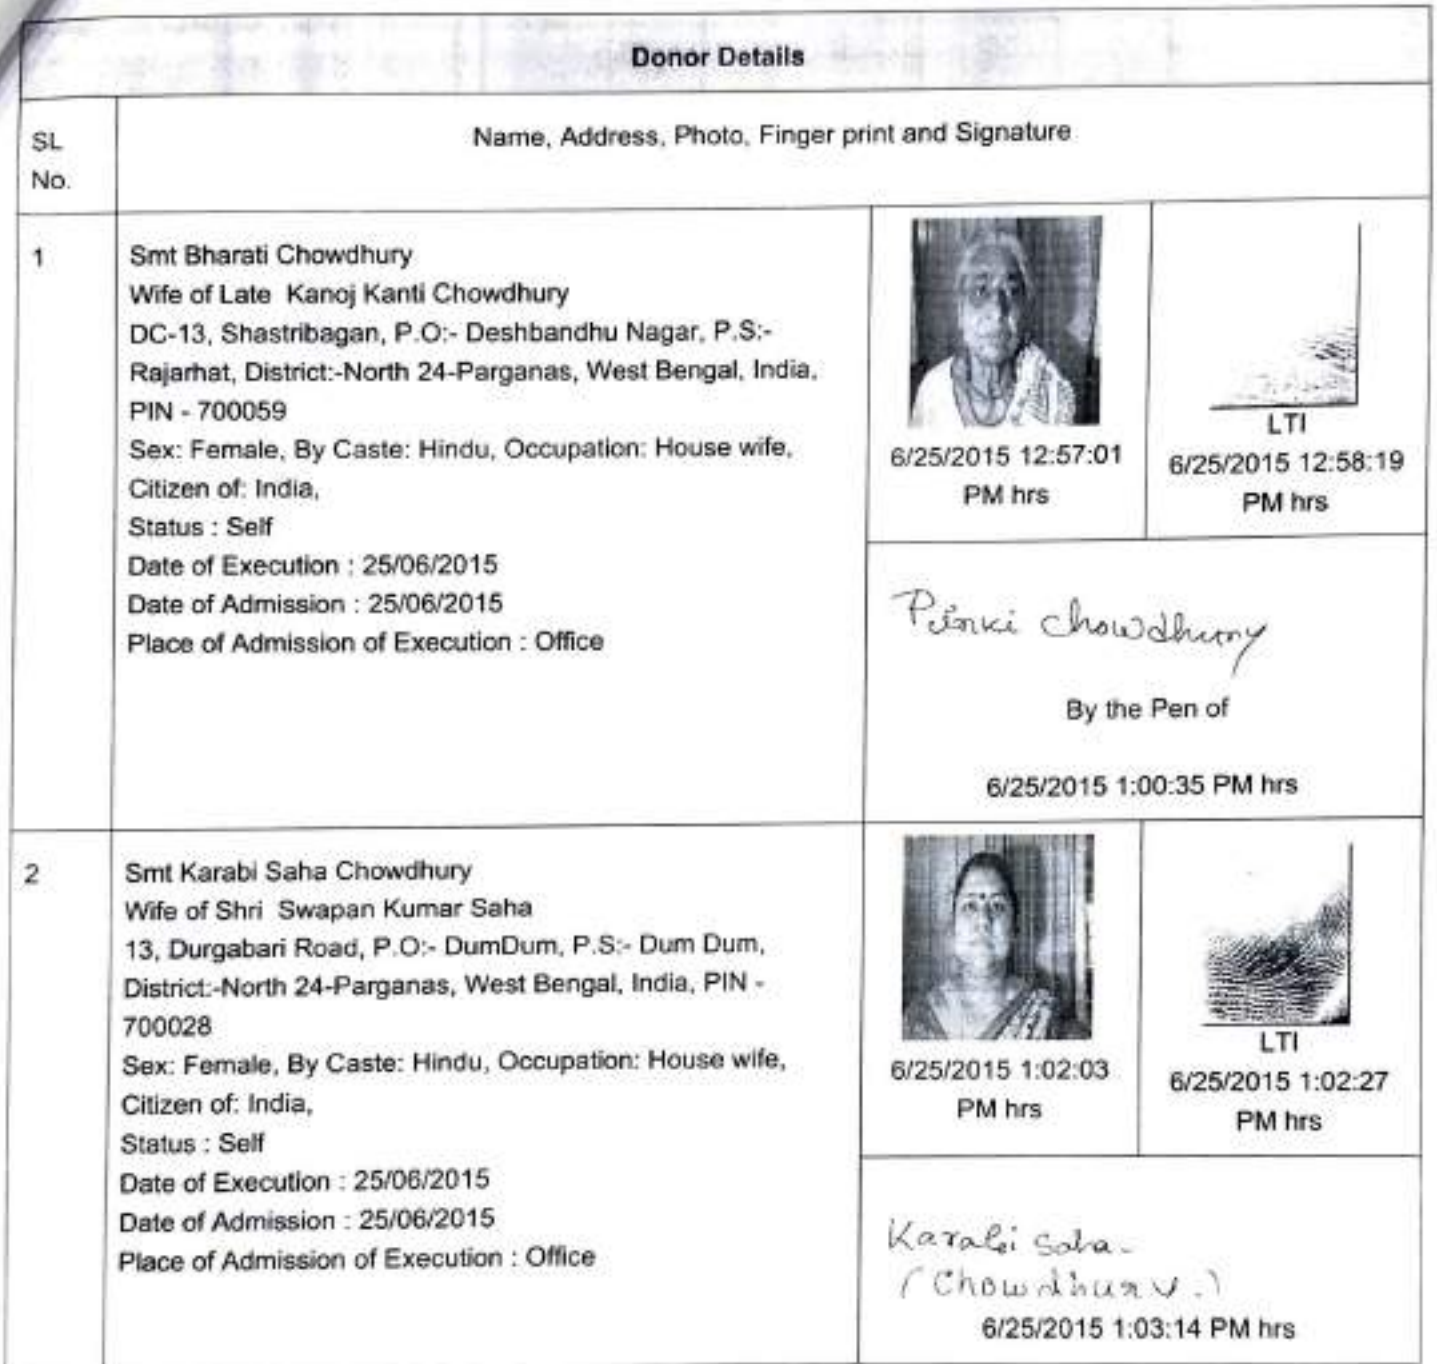 Donor Details
SL
No.
Name, Address, Photo, Finger print and Signature
1
Smt Bharati Chowdhury
Wife of Late Kanoj Kanti Chowdhury
DC-13, Shastribagan, P.O:- Deshbandhu Nagar, P.S:-
Rajarhat, District:-North 24-Parganas, West Bengal, India,
PIN - 700059
Sex: Female, By Caste: Hindu, Occupation: House wife,
Citizen of: India,
Status : Self
Date of Execution : 25/06/2015
Date of Admission : 25/06/2015
Place of Admission of Execution : Office
6/25/2015 12:57:01
PM hrs
LTI
6/25/2015 12:58:19
PM hrs
Pinki Chowdhury
By the Pen of
6/25/2015 1:00:35 PM hrs
2
Smt Karabi Saha Chowdhury
Wife of Shri Swapan Kumar Saha
13, Durgabari Road, P.O:- DumDum, P.S:- Dum Dum,
District:-North 24-Parganas, West Bengal, India, PIN -
700028
Sex: Female, By Caste: Hindu, Occupation: House wife,
Citizen of: India,
Status : Self
Date of Execution : 25/06/2015
Date of Admission : 25/06/2015
Place of Admission of Execution : Office
6/25/2015 1:02:03
PM hrs
LTI
6/25/2015 1:02:27
PM hrs
Karabi Saha.
(Chowdhury.)
6/25/2015 1:03:14 PM hrs